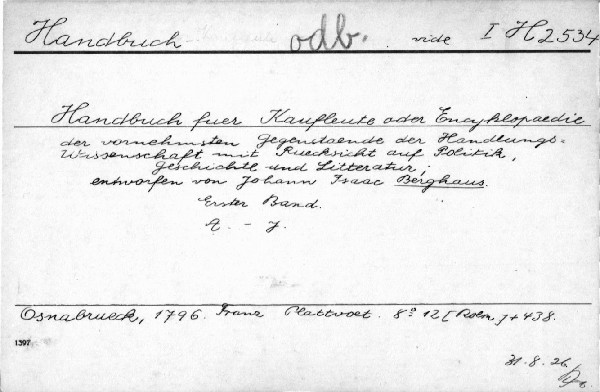 Handbuch odb. vide I H 2534
Handbuch fuer Kaufleute oder Encyklopaedie
der vornehmsten Gegenstaende der Handlungs-
Wissenschaft mit Ruecksicht auf Politik,
Geschichte und Litteratur;
entworfen von Johann Isaac Berghaus.
Erster Band.
A. - J.
Osnabrueck, 1796. Franz Plattvoet. 8° 12 [Rolm.] + 438.
1397
31.8.26